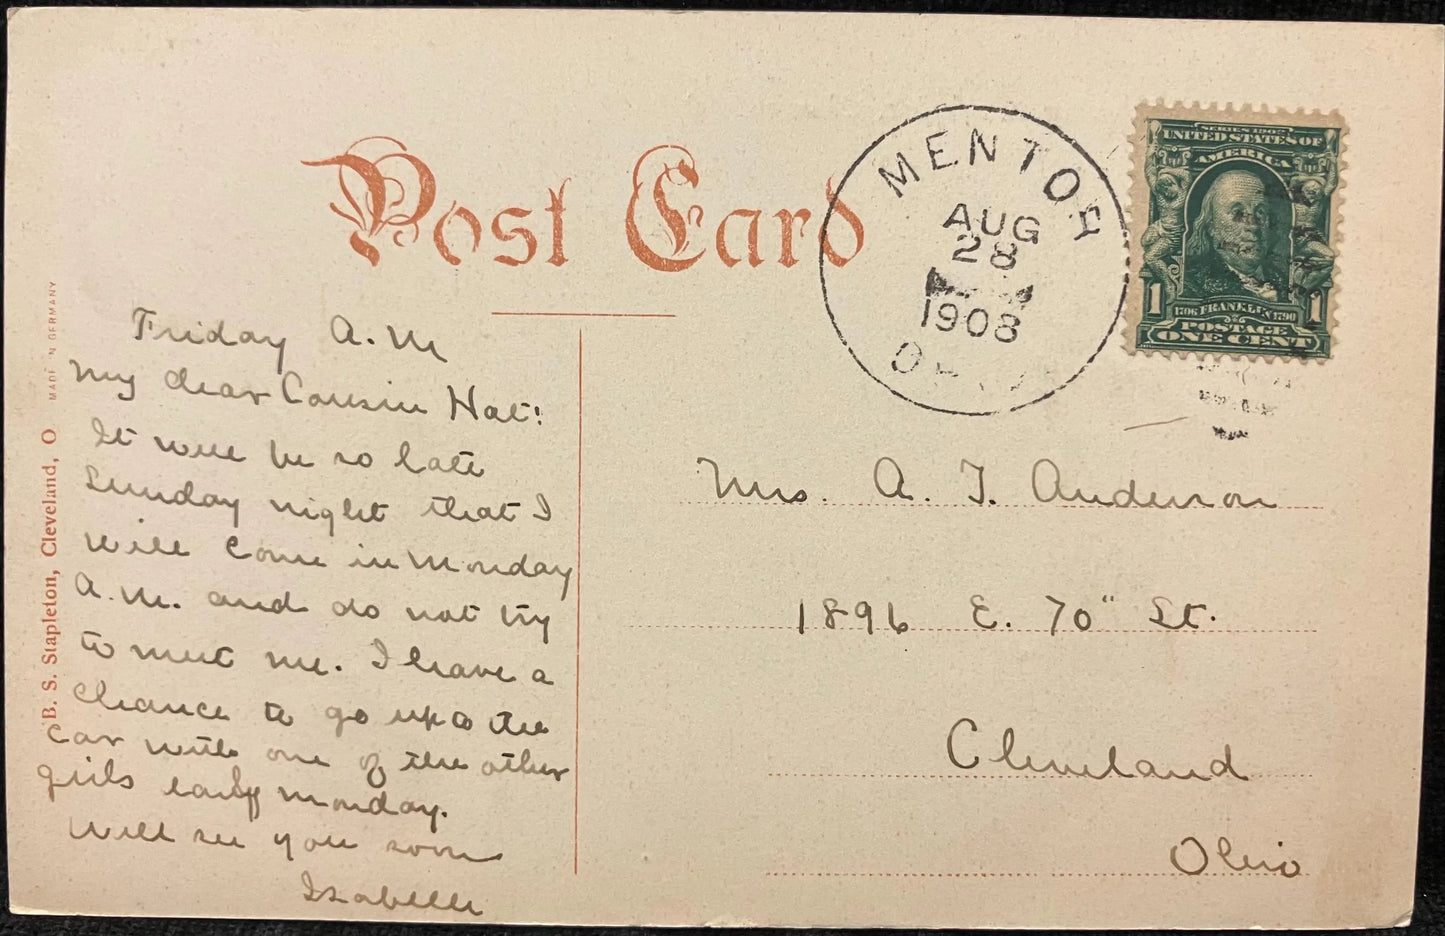 Post Card
MENTOR
AUG
28
1908
OHIO
SERIES 1902
UNITED STATES OF
AMERICA
1 1
1706 FRANKLIN 1790
POSTAGE
ONE CENT
MADE IN GERMANY
B. S. Stapleton, Cleveland, O
Friday A.M
My dear Cousin Hat:
It will be so late
Sunday night that I
will come in Monday
A.M. and do not try
to meet me. I have a
chance to go up to the
car with one of the other
girls early Monday.
Will see you soon
Isabelle
Mrs. A. T. Anderson
1896 E. 70" St.
Cleveland
Ohio